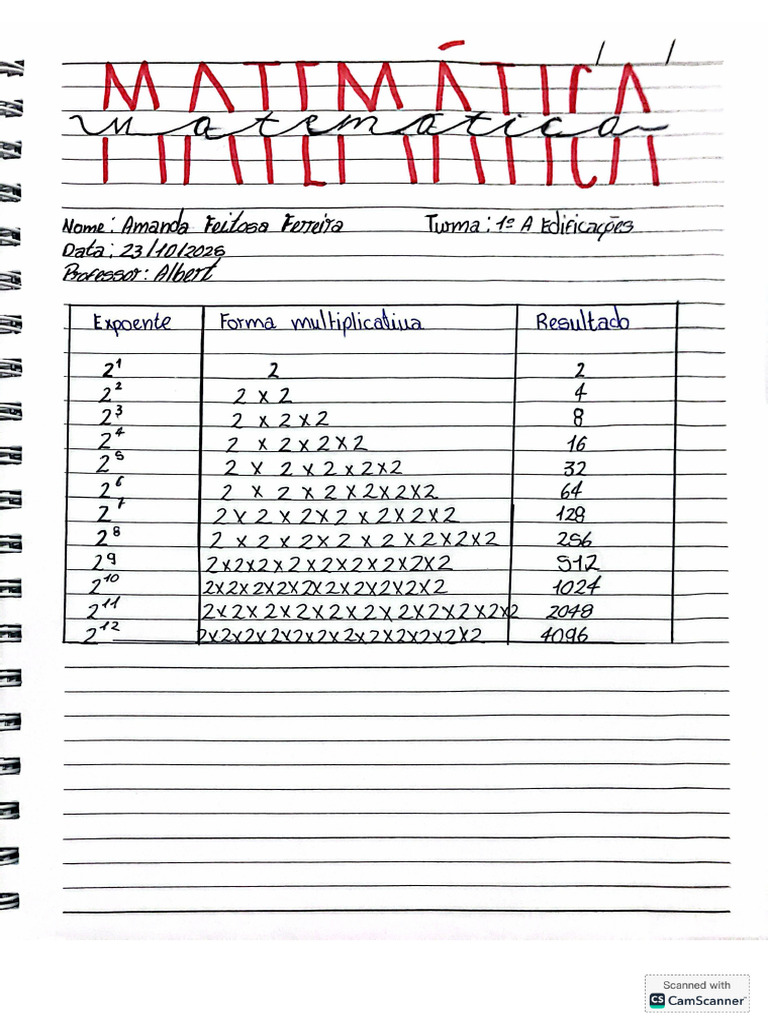 MATEMÁTICA
matemática
Nome: Amanda Feitosa Ferreira Turma: 1º A Edificações
Data: 23/10/2025
Professor: Albert
Expoente Forma multiplicativa Resultado
2¹ 2 2
2² 2 x 2 4
2³ 2 x 2 x 2 8
2⁴ 2 x 2 x 2 x 2 16
2⁵ 2 x 2 x 2 x 2 x 2 32
2⁶ 2 x 2 x 2 x 2 x 2 x 2 64
2⁷ 2 x 2 x 2 x 2 x 2 x 2 x 2 128
2⁸ 2 x 2 x 2 x 2 x 2 x 2 x 2 x 2 256
2⁹ 2 x 2 x 2 x 2 x 2 x 2 x 2 x 2 x 2 512
2¹⁰ 2 x 2 x 2 x 2 x 2 x 2 x 2 x 2 x 2 x 2 1024
2¹¹ 2 x 2 x 2 x 2 x 2 x 2 x 2 x 2 x 2 x 2 x 2 2048
2¹² 2 x 2 x 2 x 2 x 2 x 2 x 2 x 2 x 2 x 2 x 2 x 2 4096
Scanned with
CS CamScanner